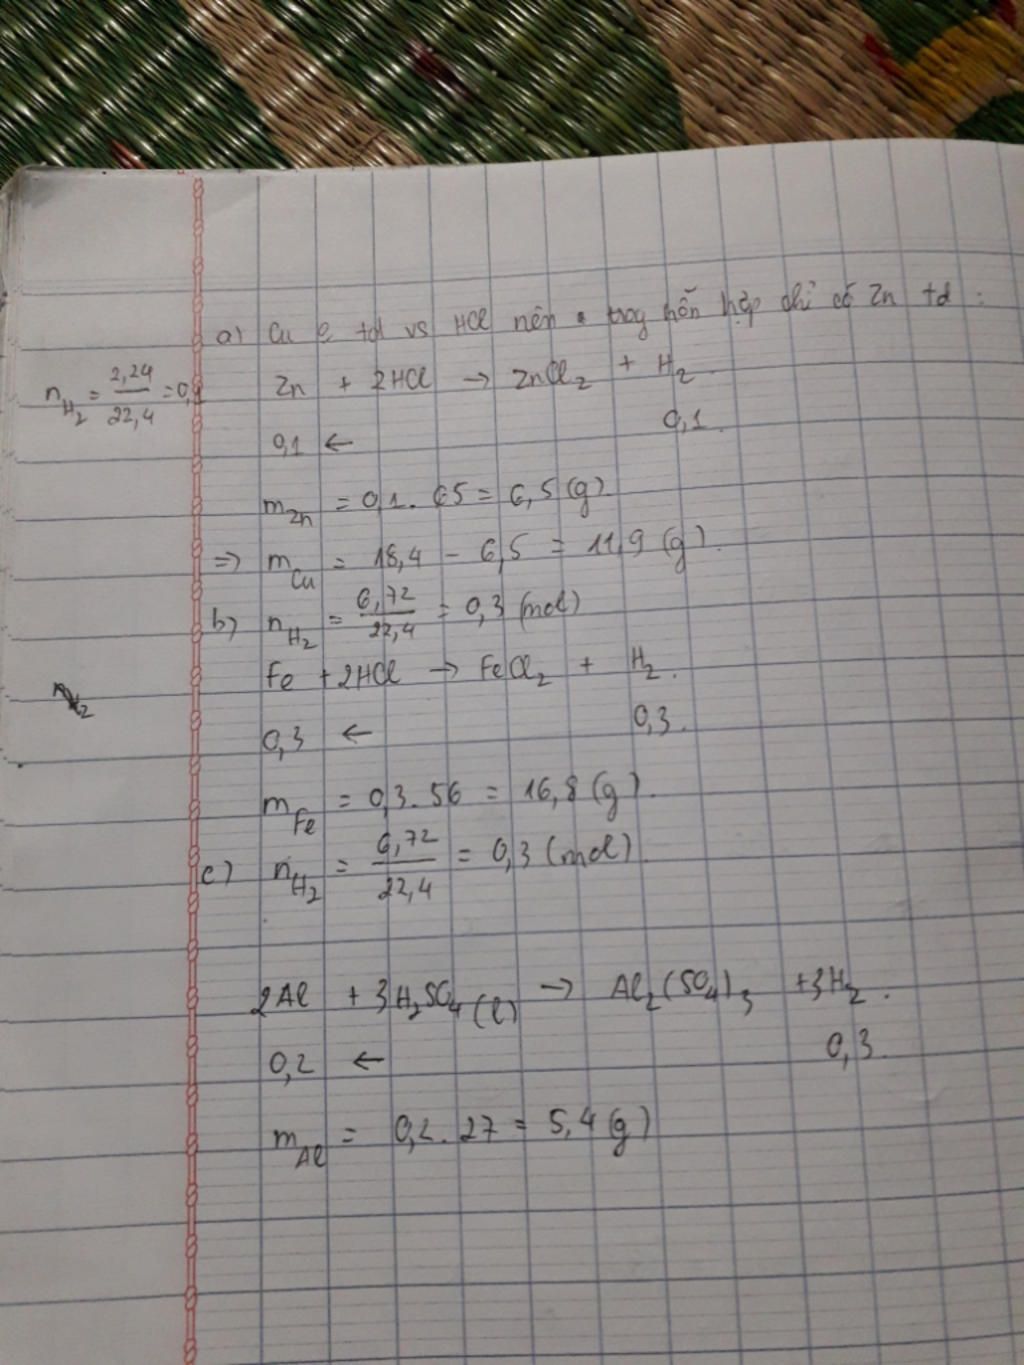 a) Cu e td vs HCl nên trog hỗn hợp chỉ có Zn td :
n_H₂ = 2,24/22,4 = 0,1
Zn + 2HCl → ZnCl₂ + H₂
0,1 ← 0,1.
m_Zn = 0,1 . 65 = 6,5 (g)
=> m_Cu = 18,4 - 6,5 = 11,9 (g).
b) n_H₂ = 6,72/22,4 = 0,3 (mol)
Fe + 2HCl → FeCl₂ + H₂.
0,3 ← 0,3.
m_Fe = 0,3 . 56 = 16,8 (g).
c) n_H₂ = 6,72/22,4 = 0,3 (mol).
2Al + 3H₂SO₄ (l) → Al₂(SO₄)₃ + 3H₂.
0,2 ← 0,3.
m_Al = 0,2 . 27 = 5,4 (g)